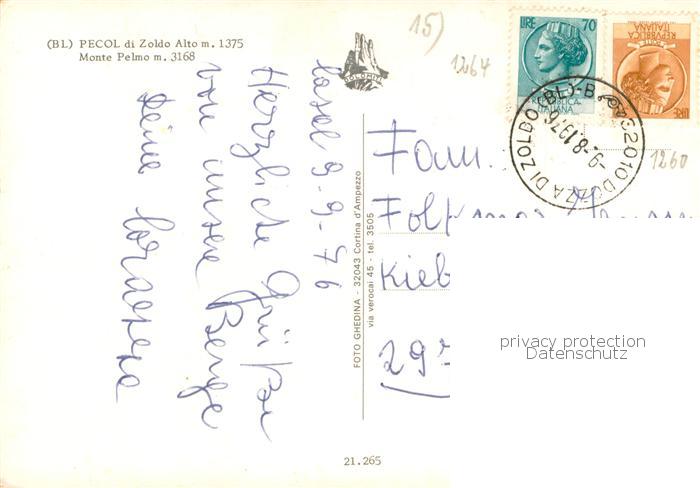 (BL) PECOL di Zoldo Alto m. 1375
Monte Pelmo m. 3168
DOLOMITI
15)
1264
LIRE 70
REPUBBLICA
ITALIANA
LIRE
REPUBBLICA
ITALIANA
32010 DOZZA DI ZOLDO (BL)-B
9-8 1976
1260
9-9-76
Herzliche Grüße
von unsere Berge
deine
Fam.
Kieb
29
FOTO GHEDINA - 32043 Cortina d'Ampezzo
via verocai 45 - tel. 3505
21.265
privacy protection
Datenschutz